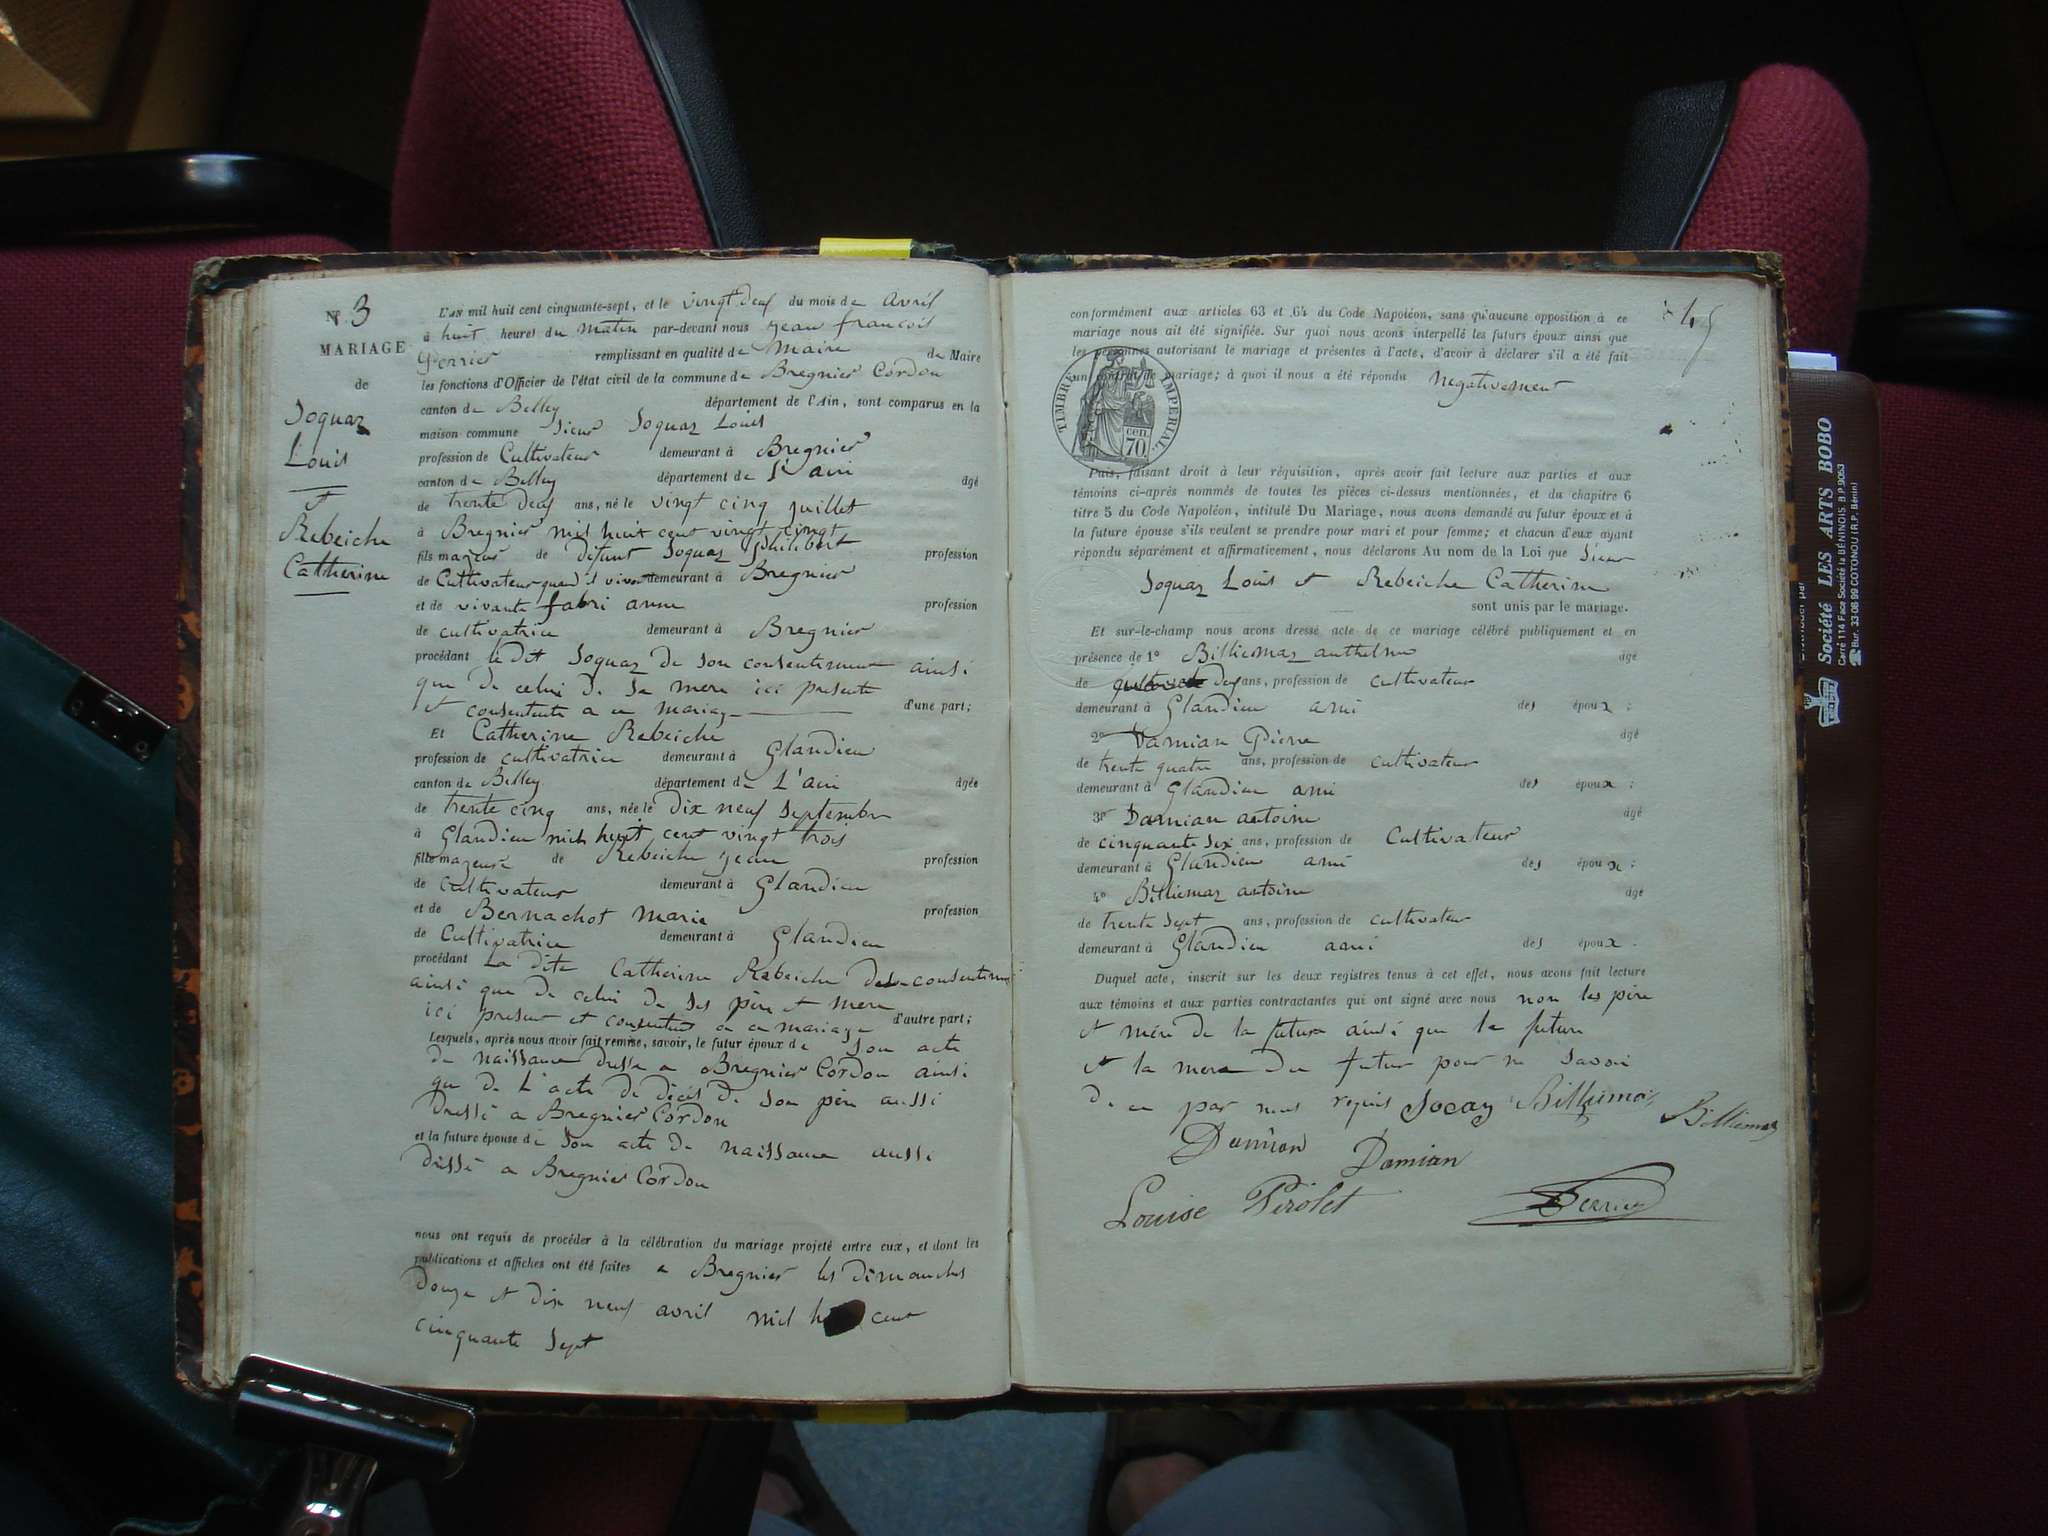 N° 3
MARIAGE
de
Soquaz
Louis
et
Rebeiche
Catherine
L'AN mil huit cent cinquante-sept, et le vingt deux du mois de avril
à huit heures du matin par-devant nous jean francois
Perrier remplissant en qualité de Maire de Maire
les fonctions d'Officier de l'état civil de la commune de Bregnier Cordon
canton de Belley département de l'Ain, sont comparus en la
maison commune Sieur Soquaz Louis
profession de Cultivateur demeurant à Bregnier
canton de Belley département de L'ain âgé
de trente deux ans, né le vingt cinq juillet
à Bregnier mil huit cent vingt cinq
fils majeur de défunt Soquaz Philibert profession
de Cultivateur quand il vivait demeurant à Bregnier
et de vivante fabri anne profession
de cultivatrice demeurant à Bregnier
procédant le dit Soquaz de son consentement ainsi
que de celui de sa mere ici presente
et consentente a ce mariage d'une part;
Et Catherine Rebeiche
profession de cultivatrice demeurant à Glandieu
canton de Belley département de L'ain âgée
de trente cinq ans, née le dix neuf Septembre
à Glandieu mil huit cent vingt trois
fille majeure de Rebeiche jean profession
de cultivateur demeurant à Glandieu
et de Bernachot Marie profession
de Cultivatrice demeurant à Glandieu
procédant La dite Catherine Rebeiche de consentement
ainsi que de celui de ses père et mere
ici present et consentent a ce mariage d'autre part;
Lesquels, après nous avoir fait remise, savoir, le futur époux de son acte
de naissance dressé a Bregnier Cordon ainsi
que de L'acte de décès de son père aussi
dressé a Bregnier Cordon
et la future épouse de son acte de naissance aussi
dressé a Bregnier Cordon
nous ont requis de procéder à la célébration du mariage projeté entre eux, et dont les
publications et affiches ont été faites a Bregnier les dimanches
douze et dix neuf avril mil cent
cinquante Sept
conformément aux articles 63 et 64 du Code Napoléon, sans qu'aucune opposition à ce
mariage nous ait été signifiée. Sur quoi nous avons interpellé les futurs époux ainsi que
les personnes autorisant le mariage et présentes à l'acte, d'avoir à déclarer s'il a été fait
un contrat de mariage; à quoi il nous a été répondu negativement
TIMBRE IMPERIAL
70 cen.
Puis, faisant droit à leur réquisition, après avoir fait lecture aux parties et aux
témoins ci-après nommés de toutes les pièces ci-dessus mentionnées, et du chapitre 6
titre 5 du Code Napoléon, intitulé Du Mariage, nous avons demandé au futur époux et à
la future épouse s'ils veulent se prendre pour mari et pour femme; et chacun d'eux ayant
répondu séparément et affirmativement, nous déclarons Au nom de la Loi que Sieur
Soquaz Louis et Rebeiche Catherine
sont unis par le mariage.
Et sur-le-champ nous avons dressé acte de ce mariage célébré publiquement et en
présence de 1° Billiemaz anthelme âgé
de ans, profession de cultivateur
demeurant à Glandieu ami des époux;
2° Damian Pierre âgé
de trente quatre ans, profession de cultivateur
demeurant à Glandieu ami des époux;
3° Damian antoine âgé
de cinquante six ans, profession de Cultivateur
demeurant à Glandieu ami des époux;
4° Billiemaz antoine âgé
de trente Sept ans, profession de cultivateur
demeurant à Glandieu ami des époux.
Duquel acte, inscrit sur les deux registres tenus à cet effet, nous avons fait lecture
aux témoins et aux parties contractantes qui ont signé avec nous non les père
et mère de la future ainsi que la future
et la mere du futur pour ne savoir
de ce par nous requis Socay Billiemaz Billiemaz
Damian Damian
Louise Pirolet Perrier
Société LES ARTS BOBO
Carré 114 Face Société la BÉNINOIS. B.P. 9053
Bur. 33-06 99 COTONOU (R.P. Bénin)